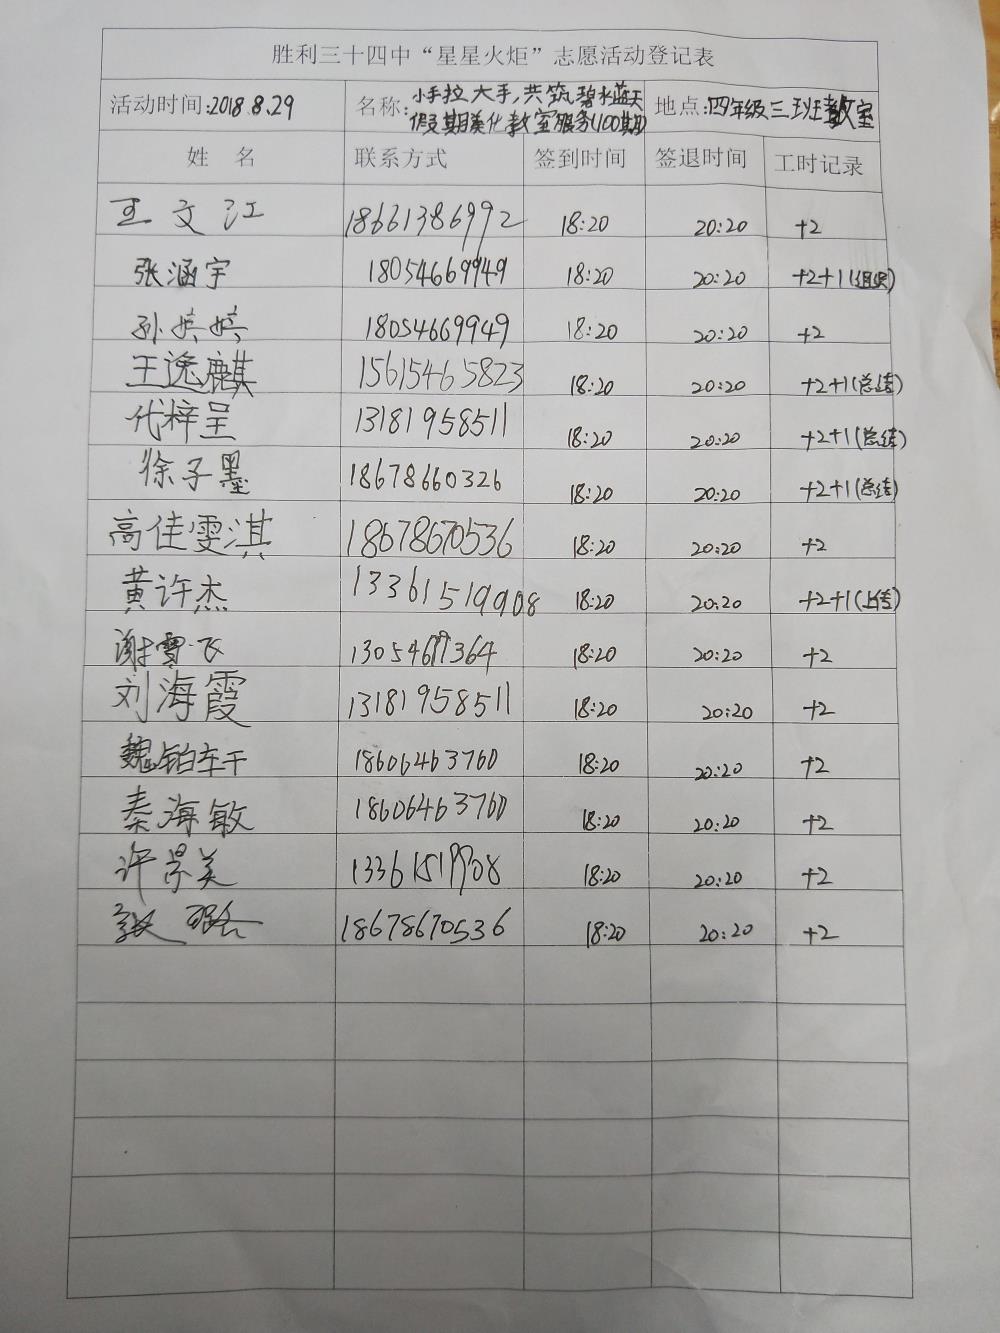 胜利三十四中“星星火炬”志愿活动登记表
活动时间:2018.8.29 名称:小手拉大手,共筑碧水蓝天 地点:四年级三班教室
假期美化教室服务(100期)
姓 名 联系方式 签到时间 签退时间 工时记录
王文江 18661386992 18:20 20:20 +2
张涵宇 18054669949 18:20 20:20 +2+1(组织)
孙 18054669949 18:20 20:20 +2
王逸麒 15615465823 18:20 20:20 +2+1(总结)
代梓呈 13181958511 18:20 20:20 +2+1(总结)
徐子墨 18678660326 18:20 20:20 +2+1(总结)
高佳雯淇 18678670536 18:20 20:20 +2
黄许杰 13361519908 18:20 20:20 +2+1(上传)
谢雪飞 18:20 20:20 +2
刘海霞 13181958511 18:20 20:20 +2
魏铂轩 18606463760 18:20 20:20 +2
秦海敏 18606463760 18:20 20:20 +2
许景美 13361519908 18:20 20:20 +2
张璐 18678670536 18:20 20:20 +2